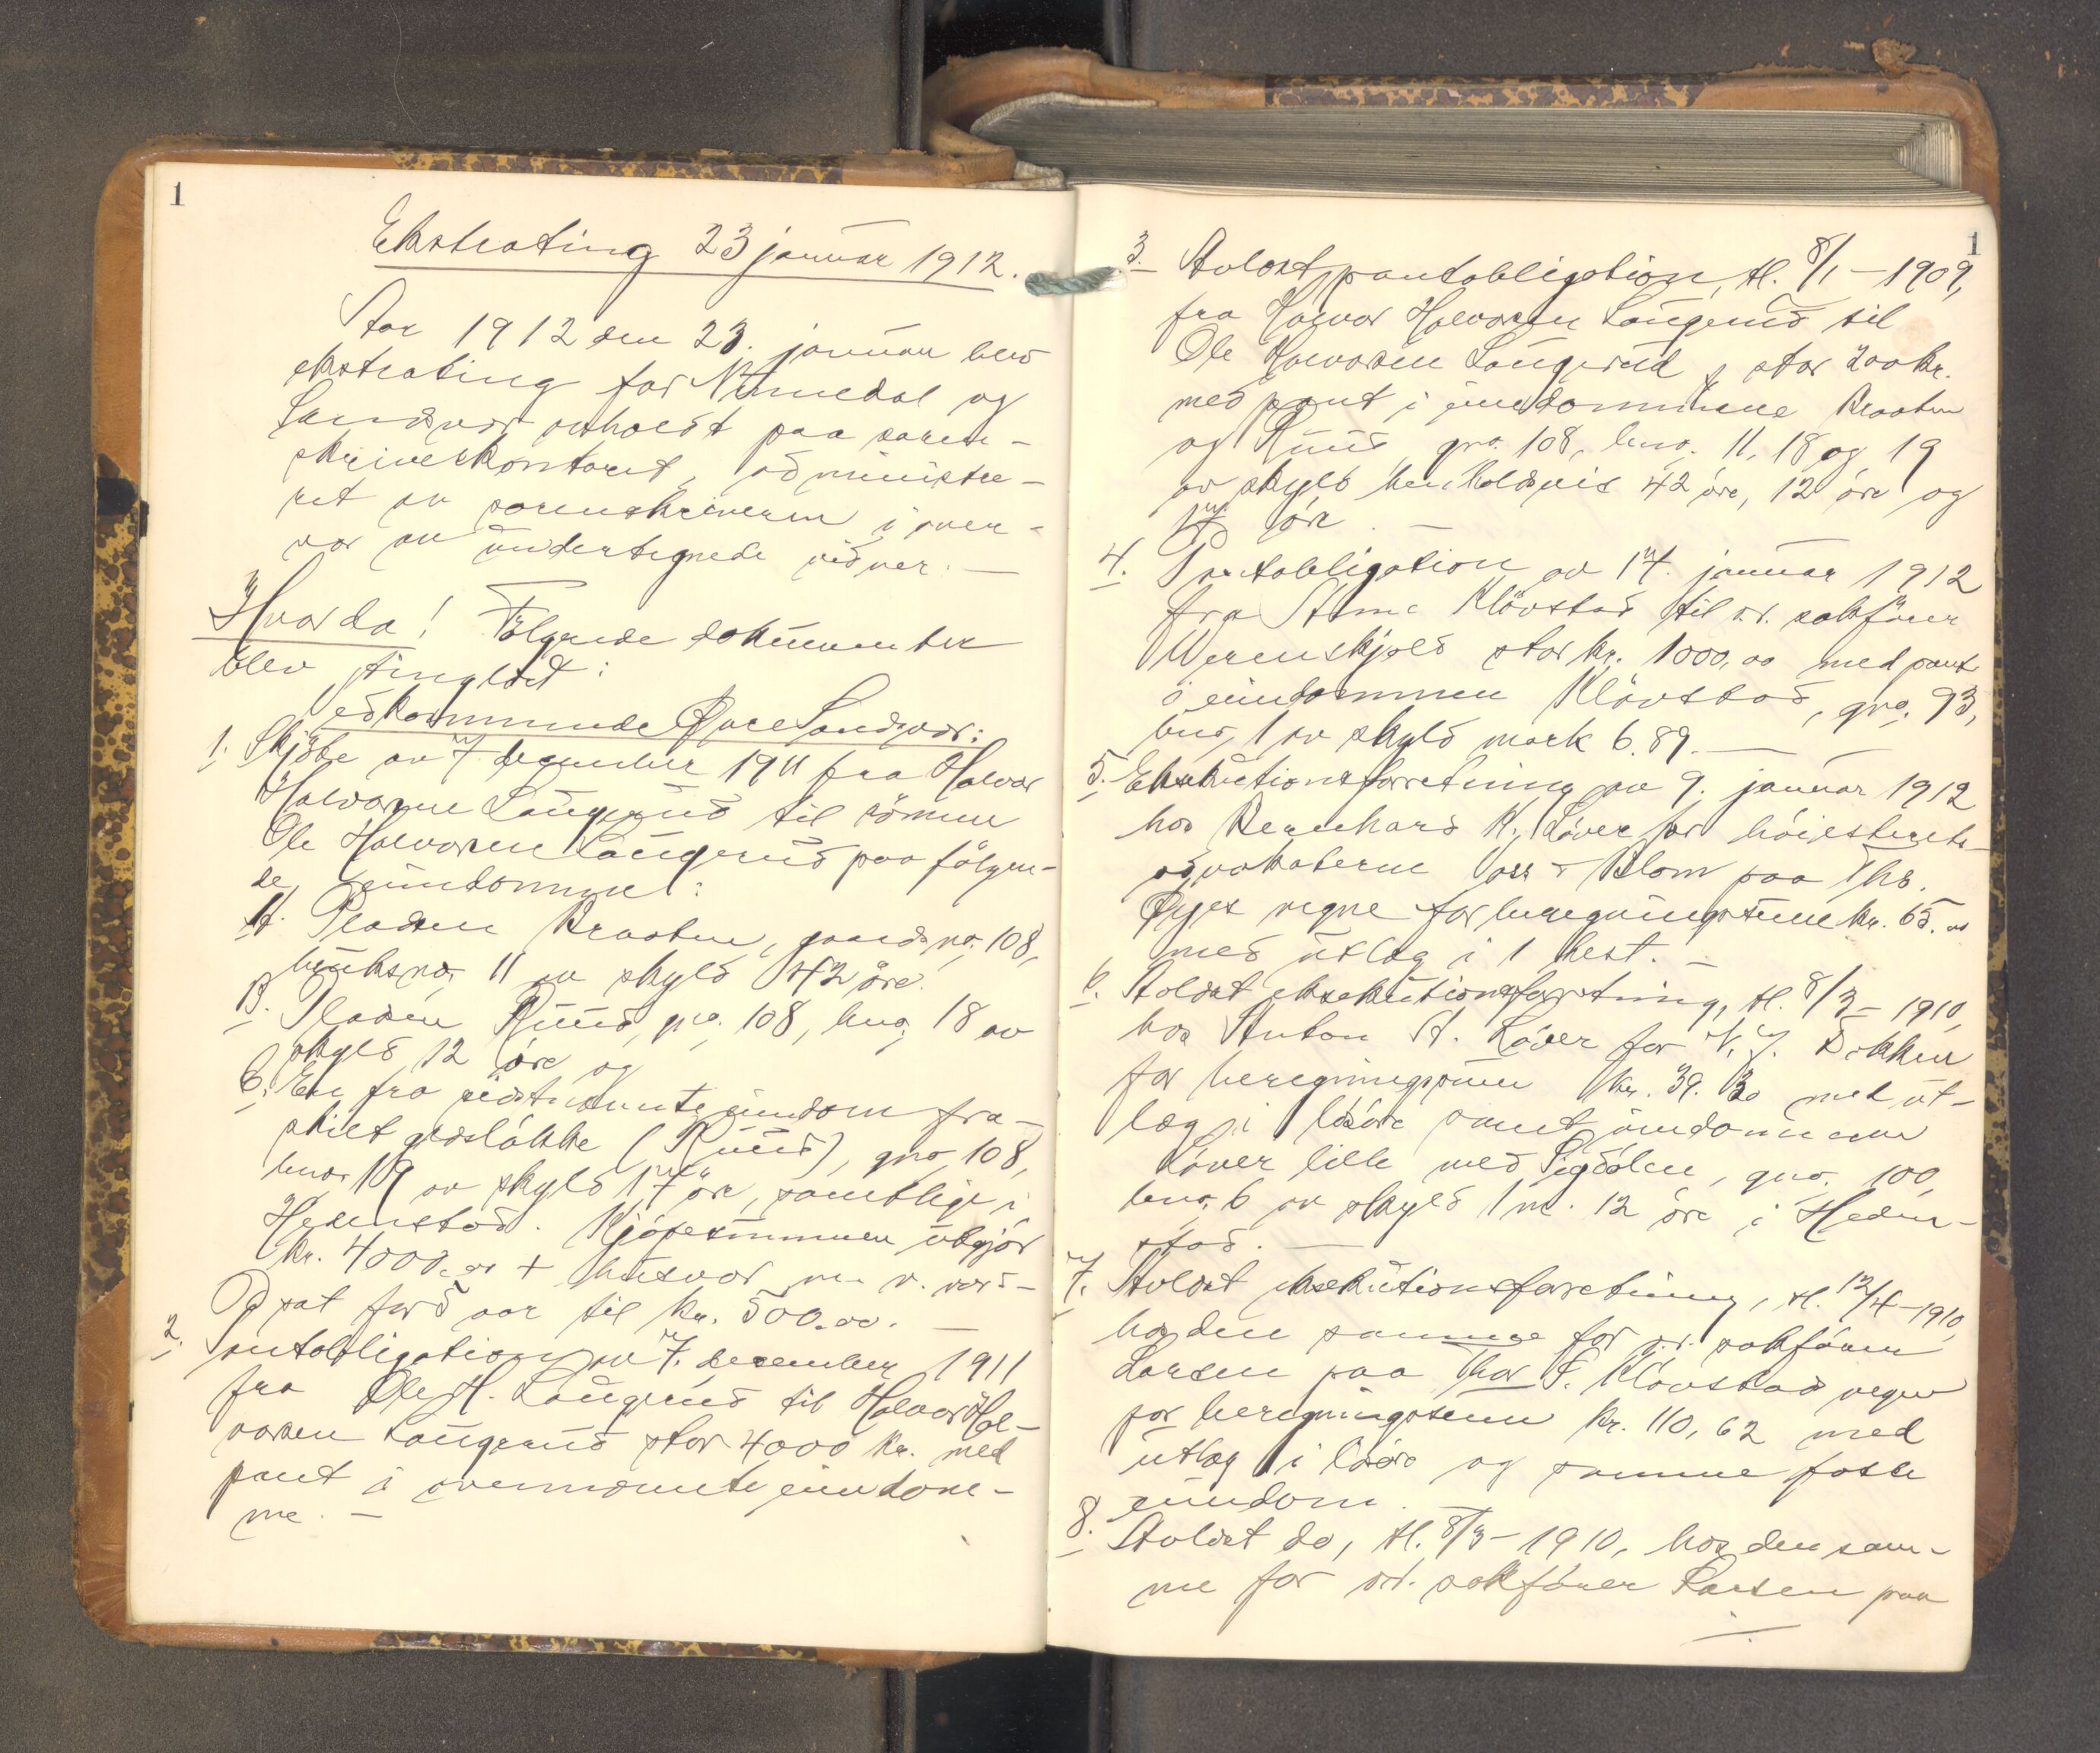 1
Ekstrating 23 januar 1912.
Aar 1912 den 23. januar blev
ekstrating for Numedal og
Sandsvær avholdt paa soren-
skriverkontoret, administre-
ret av sorenskriveren i over-
vær av undertegnede vidner. —
Hvorda! Følgende dokumenter
blev tinglæst:
vedkommende Øvre Sandsvær:
1. Skjöte av 7 december 1911 fra Halvor
Halvorsen Laugerud til sönnen
Ole Halvorsen Laugerud paa fölgen-
de eiendommer:
A. Pladsen Braaten, gaardsno. 108,
bruksno. 11 av skyld 42 öre.
B. Pladsen Ruud, gno. 108, bno. 18 av
skyld 12 öre og
C. En fra sidstnævnte eiendom fra-
skilt græsløkke (Ruud), gno. 108,
bno. 19 av skyld 17 öre, samtlige i
Hedenstad. Kjöpesummen utgjör
kr. 4000.00 + husvær m. v. værd-
sat for 5 aar til kr. 500.00. —
2. Pantobligation av 7. december 1911
fra Ole H. Laugerud til Halvor Hal-
vorsen Laugerud stor 4000 kr. med
pant i ovennævnte eiendom-
me. —
1
3. Avlæst pantobligation, tl. 8/1 – 1909,
fra Halvor Halvorsen Laugerud til
Ole Halvorsen Laugerud, stor 200 kr.
med pant i eiendommene Braaten
og Ruud, gno. 108, bno. 11, 18 og 19
av skyld henholdsvis 42 öre, 12 öre og
17 öre. —
4. Pantobligation av 17. januar 1912
fra Klövstad til o.r. sakförer
Werenskjold stor kr. 1000,00 med pant
i eiendommen Klövstad, gno. 93,
bno, 1 av skyld mark 6.89. —
5. Eksekutionsforretning av 9. januar 1912
hos Bernhard K. Löver for höiesterets-
advokaterne Voss & Blom paa Ths.
Øyes vegne for beregningssum kr. 65.00
med utlæg i 1 hest. —
6. Avlæst eksekutionsforretning, tl. 8/3 – 1910,
hos Anton A. Löver for Dokken
for beregningssum kr. 39.30 med ut-
læg i lösöre samt eiendommen
Löver lille med Sigdölen, gno. 100,
bno. 6 av skyld 1 m. 12 öre i Heden-
stad. —
7. Avlæst eksekutionsforretning, tl. 12/4 – 1910,
hos den samme for o.r. sakförer
Larsen paa Thor F. Klövstads vegne
for beregningssum kr. 110,62 med
utlæg i lösöre og samme faste
eiendom.
8. Avlæst do, tl. 8/3 – 1910, hos den sam-
me for o.r. sakförer Larsen paa